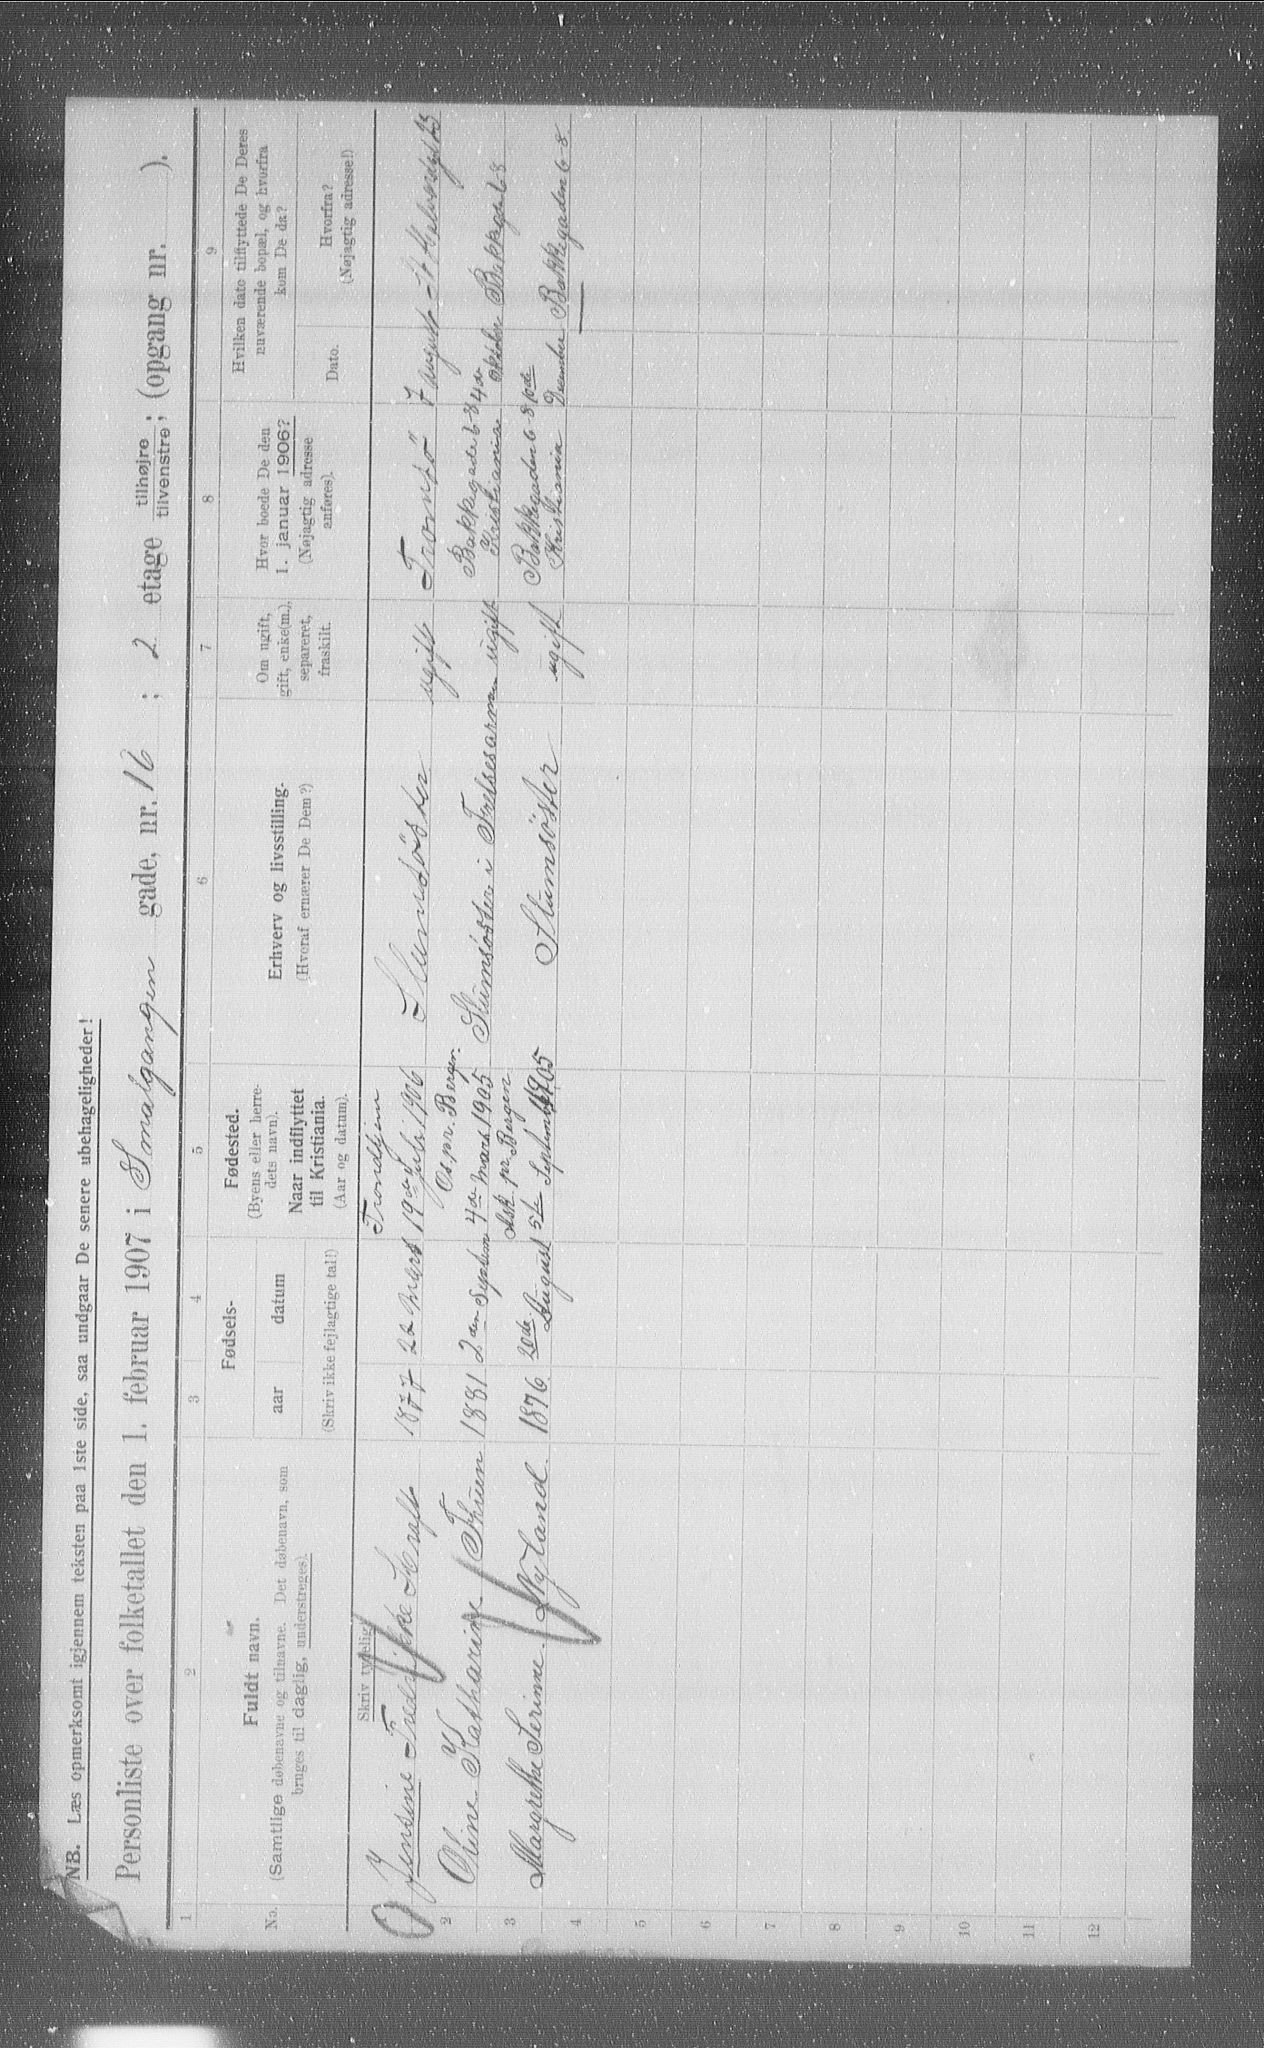 NB. Læs opmerksomt igjennem teksten paa 1ste side, saa undgaar De senere ubehageligheder!
Personliste over folketallet den 1. februar 1907 i Smalgangen gade, nr. 16 ; 2 etage tilhøjre tilvenstre; (opgang nr. ).
1 2 3 4 5 6 7 8 9
No.
Fuldt navn.
(Samtlige døbenavne og tilnavne. Det døbenavn, som
bruges til daglig, understreges).
Fødsels-
aar datum
(Skriv ikke fejlagtige tal!)
Fødested.
(Byens eller herre-
dets navn).
Naar indflyttet
til Kristiania.
(Aar og datum).
Erhverv og livsstilling.
(Hvoraf ernærer De Dem?)
Om ugift,
gift, enke(m.),
separeret,
fraskilt.
Hvor boede De den
1. januar 1906?
(Nøjagtig adresse
anføres).
Hvilken dato tilflyttede De Deres
nuværende bopæl, og hvorfra
kom De da?
Dato.
Hvorfra?
(Nøjagtig adresse!)
Skriv tydelig!
Trondhjem
Jensine Fredrikke Kraft 1877 22 Mars 19de Juli 1906 Slumsöster ugift Tromsö 7 August
Os pr. Bergen Bakkegade 6-8 4de
2 Oline Katharine Thuen 1881 2den Septem 4de Mars 1905 Slumsöster i Frelsesarmen ugift Kristiania Oktober Bakkegd 6-8
Ask pr. Bergen Bakkegaden 6-8 10de
3 Margrethe Serine Nyland 1876 20de August 5te September 1905 Slumsöster ugift Kristiania December Bakkegaden 6-8
4
5
6
7
8
9
10
11
12